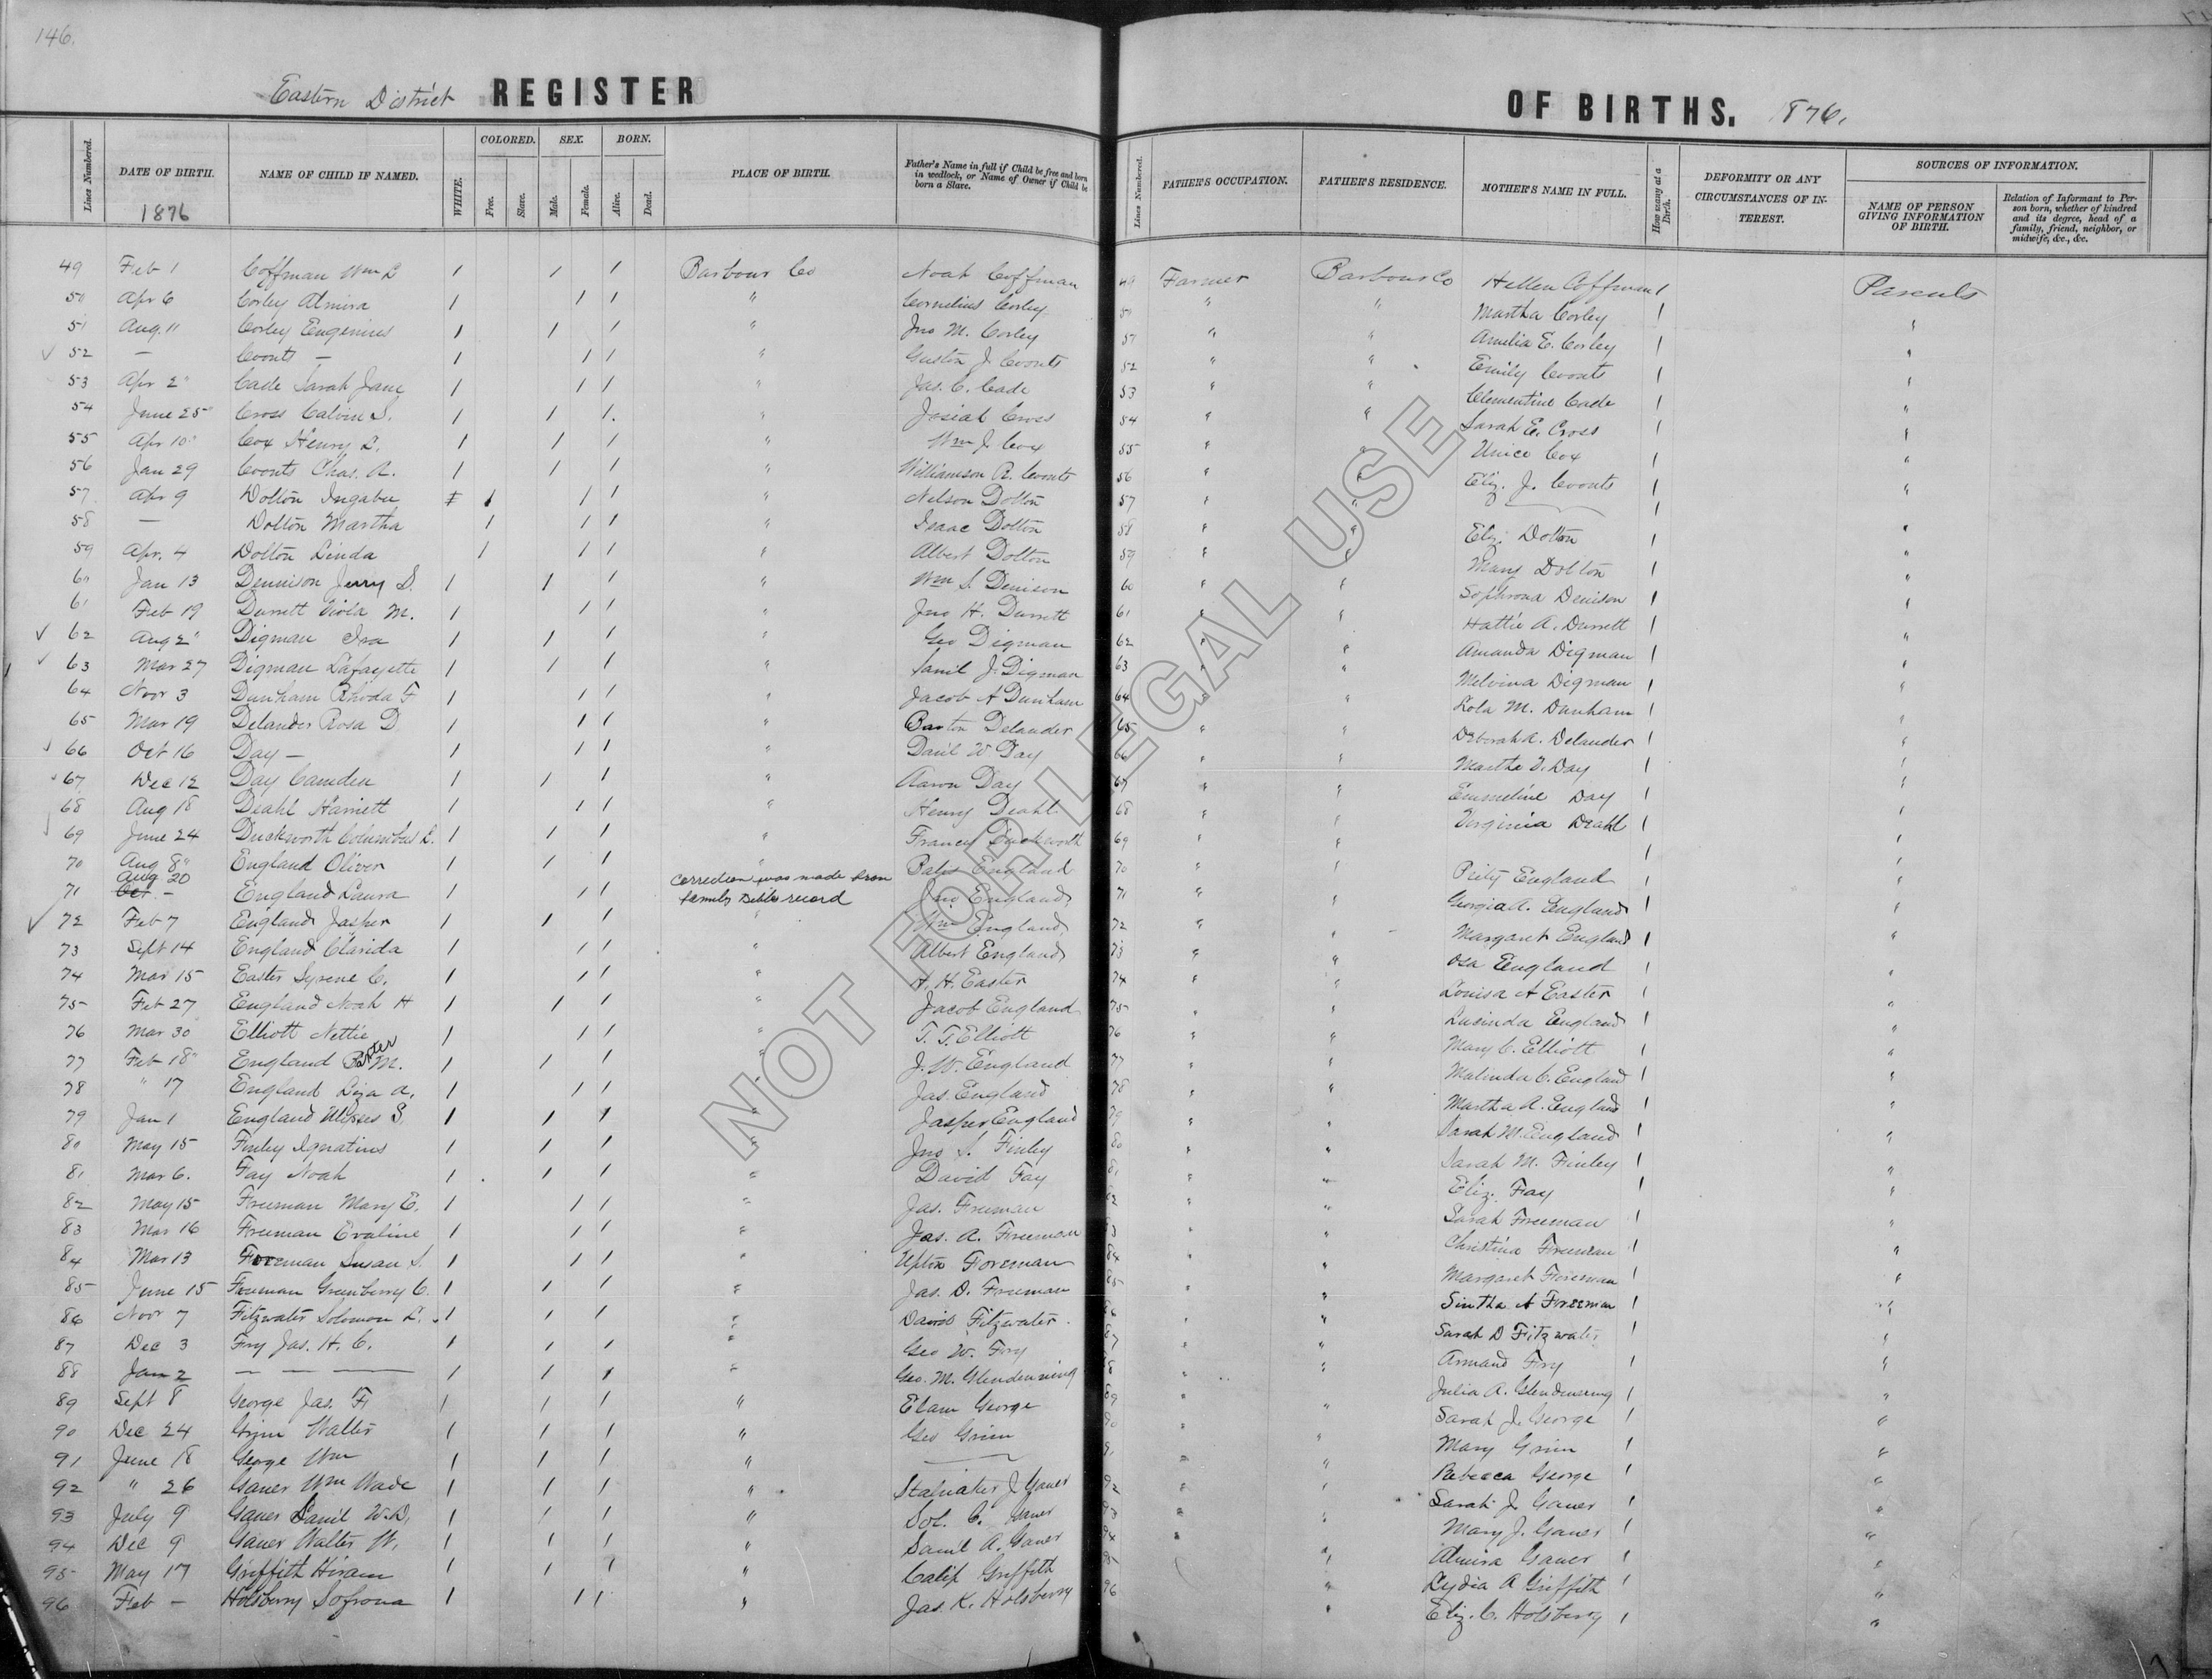 146.
Eastern District REGISTER
Lines Numbered. DATE OF BIRTH. NAME OF CHILD IF NAMED. WHITE. COLORED. Free. Slave. SEX. Male. Female. BORN. Alive. Dead. PLACE OF BIRTH. Father's Name in full if Child be free and born in wedlock, or Name of Owner if Child be born a Slave.
1876
49 Feb 1 Coffman Wm L 1 1 1 Barbour Co Noah Coffman
50 Apr 6 Corley Almira 1 1 1 " Cornelius Corley
51 Aug. 11 Corley Eugenius 1 1 1 " Jno M. Corley
✓ 52 — Coonts — 1 1 1 " Guston J. Coonts
53 Apr 2" Cade Sarah Jane 1 1 1 " Jas. C. Cade
54 June 25" Cross Calvin S. 1 1 1. " Josiah Cross
55 Apr 10" Cox Henry L. 1 1 1 " Wm J. Cox
56 Jan 29 Coonts Chas. A. 1 1 1 " Williamson R. Coonts
57 Apr 9 Dolton Ingabee 1 1 1 " Nelson Dolton
58 — Dolton Martha 1 1 1 " Isaac Dolton
59 Apr. 4 Dolton Linda 1 1 1 " Albert Dolton
60 Jan 13 Dennison Jerry D. 1 1 1 " Wm S. Denison
61 Feb 19 Durrett Viola M. 1 1 1 " Jno H. Durrett
✓ 62 Aug 2" Digman Ira 1 1 1 " Geo Digman
✓ 63 Mar 27 Digman Lafayette 1 1 1 " Saml J. Digman
64 Novr 3 Dunham Rhoda F 1 1 1 " Jacob A Dunham
65 Mar 19 Delander Rosa D 1 1 1 " Barton Delander
✓ 66 Oct 16 Day — 1 1 1 " Danl W Day
✓ 67 Dec 12 Day Camden 1 1 1 " Aaron Day
68 Aug 18 Deahl Harriett 1 1 1 " Henry Deahl
69 June 24 Duckworth Columbus L. 1 1 1 " Francis Duckworth
70 Aug 8" England Oliver 1 1 1 " England
Aug 20
71 Oct. — England Laura 1 1 1 correction was made from family Bible record Jno England
✓ 72 Feb 7 England Jasper 1 1 1 " Wm England
73 Sept 14 England Clarida 1 1 1 " Albert England
74 Mar 15 Easter Syrene C. 1 1 1 " H. H. Easter
75 Feb 27 England Noah H 1 1 1 " Jacob England
76 Mar 30 Elliott Nettie 1 1 1 " T. T. Elliott
77 Feb 18" England Porter M. 1 1 1 " J. W. England
78 " 17 England Liza A. 1 1 1 " Jas. England
79 Jan 1 England Ulysses S. 1 1 1 " Jasper England
80 May 15 Finley Ignatius 1 1 1 " Jno S. Finley
81 Mar 6. Fay Noah 1 1 1 " David Fay
82 May 15 Freeman Mary E. 1 1 1 " Jas. Freeman
83 Mar 16 Freeman Evaline 1 1 1 " Jas. A. Freeman
84 Mar 13 Foreman Susan S. 1 1 1 " Upton Foreman
85 June 15 Freeman Greenberry C. 1 1 1 " Jas. D. Freeman
86 Novr 7 Fitzwater Solomon L. 1 1 1 " David Fitzwater
87 Dec 3 Fry Jas. H. C. 1 1 1 " Geo W. Fry
88 Jan 2 — — — 1 1 1 " Geo. M. Glendenning
89 Sept 8 George Jas. F. 1 1 1 " Elam George
90 Dec 24 Grim Walter 1 1 1 " Geo Grim
91 June 18 George Wm 1 1 1 " —
92 " 26 Gainer Wm Wade 1 1 1 " Stalnaker J Gainer
93 July 9 Gainer Danil W.D. 1 1 1 " Sol. C. Gainer
94 Dec 9 Gainer Walter W. 1 1 1 " Saml A. Gainer
95 May 17 Griffith Hiram 1 1 1 " Calip Griffith
96 Feb — Holsberry Sofrona 1 1 1 " Jas. K. Holsberry
OF BIRTHS. 1876.
Lines Numbered. FATHER'S OCCUPATION. FATHER'S RESIDENCE. MOTHER'S NAME IN FULL. How many at a Birth. DEFORMITY OR ANY CIRCUMSTANCES OF INTEREST. SOURCES OF INFORMATION. NAME OF PERSON GIVING INFORMATION OF BIRTH. Relation of Informant to Person born, whether of kindred and its degree, head of a family, friend, neighbor, or midwife, &c., &c.
49 Farmer Barbour Co Hellen Coffman 1 Parents
50 " " Martha Corley 1 "
51 " " Amelia E. Corley 1 "
52 " " Emily Coonts 1 "
53 " " Clementine Cade 1 "
54 " " Sarah E. Cross 1 "
55 " " Unice Cox 1 "
56 " " Eliz. J. Coonts 1 "
57 " " — 1 "
58 " " Eliz. Dolton 1 "
59 " " Mary Dolton 1 "
60 " " Sophrona Denison 1 "
61 " " Hattie A. Durrett 1 "
62 " " Amanda Digman 1 "
63 " " Melvina Digman 1 "
64 " " Lola M. Dunham 1 "
65 " " Deborah A. Delander 1 "
66 " " Martha V. Day 1 "
67 " " Emmeline Day 1 "
68 " " Virginia Deahl 1 "
69 " " 1 "
70 " " Prity England 1 "
71 " " Georgia A. England 1 "
72 " " Margaret England 1 "
73 " " Osa England 1 "
74 " " Louisa A Easter 1 "
75 " " Lucinda England 1 "
76 " " Mary C. Elliott 1 "
77 " " Malinda C. England 1 "
78 " " Martha A. England 1 "
79 " " Sarah M. England 1 "
80 " " Sarah M. Finley 1 "
81 " " Eliz. Fay 1 "
82 " " Sarah Freeman 1 "
83 " " Christina Freeman 1 "
84 " " Margaret Foreman 1 "
85 " " Sintha A Freeman 1 "
86 " " Sarah D Fitzwater 1 "
87 " " Armand Fry 1 "
88 " " Julia A. Glendenning 1 "
89 " " Sarah J. George 1 "
90 " " Mary Grim 1 "
91 " " Rebecca George 1 "
92 " " Sarah J. Gainer 1 "
93 " " Mary J. Gainer 1 "
94 " " Almira Gainer 1 "
95 " " Lydia A Griffith 1 "
96 " " Eliz. C. Holsberry 1 "
NOT FOR LEGAL USE